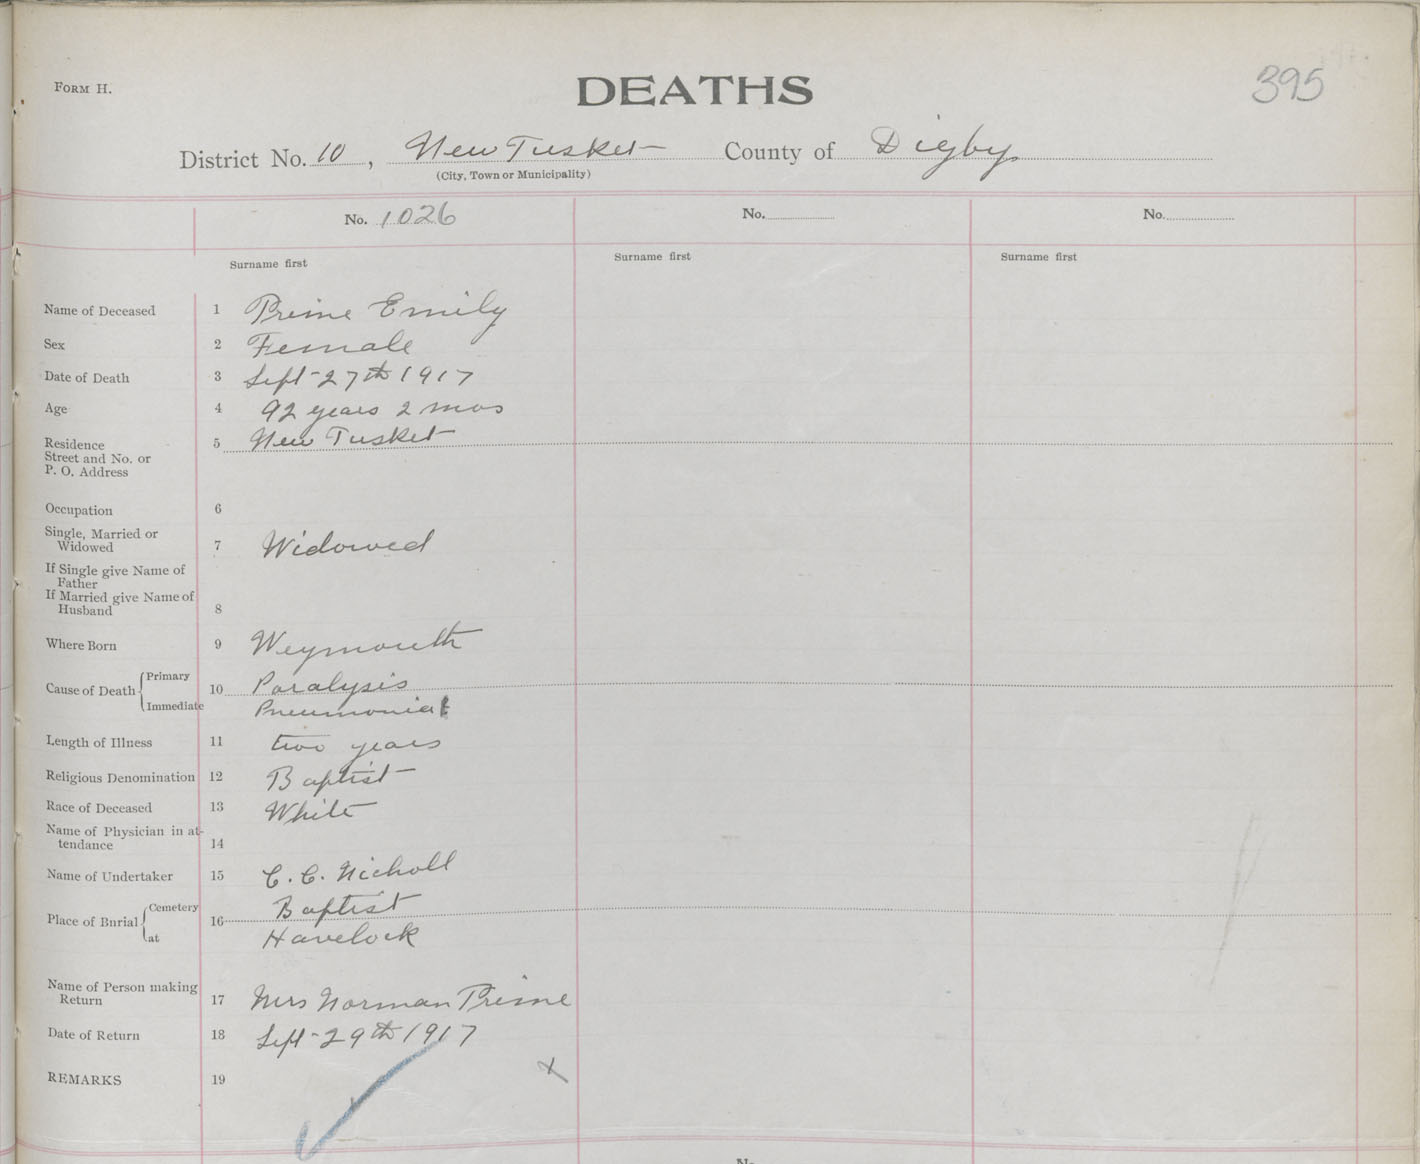 395
FORM H.
DEATHS
District No. 10, New Tusket County of Digby
(City, Town or Municipality)
No. 1026 No. No.
Surname first Surname first Surname first
Name of Deceased 1 Prime Emily
Sex 2 Female
Date of Death 3 Sept 27th 1917
Age 4 92 years 2 mos
Residence 5 New Tusket
Street and No. or
P. O. Address
Occupation 6
Single, Married or
Widowed 7 Widowed
If Single give Name of
Father
If Married give Name of
Husband 8
Where Born 9 Weymouth
Primary
Cause of Death 10 Paralysis
Immediate Pneumonia
Length of Illness 11 two years
Religious Denomination 12 Baptist
Race of Deceased 13 White
Name of Physician in at-
tendance 14
Name of Undertaker 15 C. C. Nicholl
Cemetery Baptist
Place of Burial 16
at Havelock
Name of Person making
Return 17 Mrs Norman Prime
Date of Return 18 Sept 29th 1917
REMARKS 19
No.